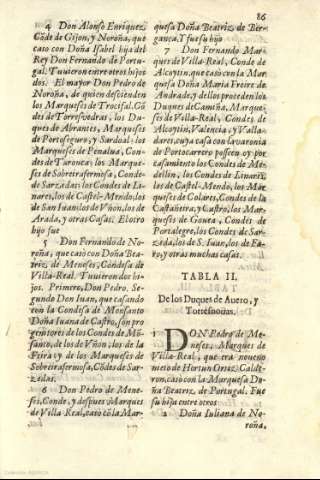 86
4 Don Alonso Enriquez,
Cõde de Gijon, y Noroña, que
caso con Doña Isabel hija del
Rey Don Fernando de Portu-
gal. Tuuieron entre otros hijos
dos. El mayor Don Pedro de
Noroña, de quien descienden
los Marqueses de Trocifal. Cõ
des de Torresvedras, los Du-
ques de Abrantes, Marqueses
de Portoseguro, y Sardoal: los
Marqueses de Penalua, Con-
des de Tarouca: los Marque-
ses de Sobreirafermosa, Conde-
de Sarzedas: los Condes de Li-
nares, los de Castel-Mendo; los
de San Iuan, los de Vñon, los de
Arada, y otras Casas. El otro
hijo fue
5 Don Fernando de No-
roña, que casó con Doña Bea-
triz, de Meneses, Condesa de
Villa-Real. Tuuieron dos hi-
jos. Primero, Don Pedro. Se-
gundo Don Iuan, que casando
con la Condesa de Monsanto
Doña Iuana de Castro, son pro
genitores de los Condes de Mõ-
santo, de los de Vñon, los de la
Feira y de los Marqueses de
Sobreirafermosa, Cõdes de Sar-
zedas.
6 Don Pedro de Mene-
ses, Conde, y despues Marques
de Villa-Real, casó cõ la Mar-
quesa Doña Beatriz, de Ber-
gança. Y fue su hijo
7 Don Fernando Mar-
ques de Villa-Real, Conde de
Alcoytin, que casó con la Mar
quesa Doña Maria Freire de
Andrade, y dellos proceden los
Duques de Camiña, Marque-
ses de Villa-Real, Condes de
Alcoytin, Valencia, y Valla-
dares, cuya casa con la varonia
de Portocarrero posseen oy por
casamiento los Condes de Me-
dellin, los Condes de Linares,
los de Castel-Mendo, los Mar
queses de Colares, Condes de la
Castañeira, y Castro, los Mar-
queses de Gouea, Condes de
Portalegre, los Condes de Sar-
zedas, los de S. Iuan, los de Fa-
ro, y otras muchas casas.
TABLA II.
De los Duques de Auero, y
Torresnouas.
1 DON Pedro de Me-
neses, Marques de
Villa-Real, que era noueno
nieto de Hortun Ortiz, Calde-
ron, casó con la Marquesa Do-
ña Beatriz, de Portugal. Fue
su hija entre otros
2 Doña Iuliana de No-
roña,